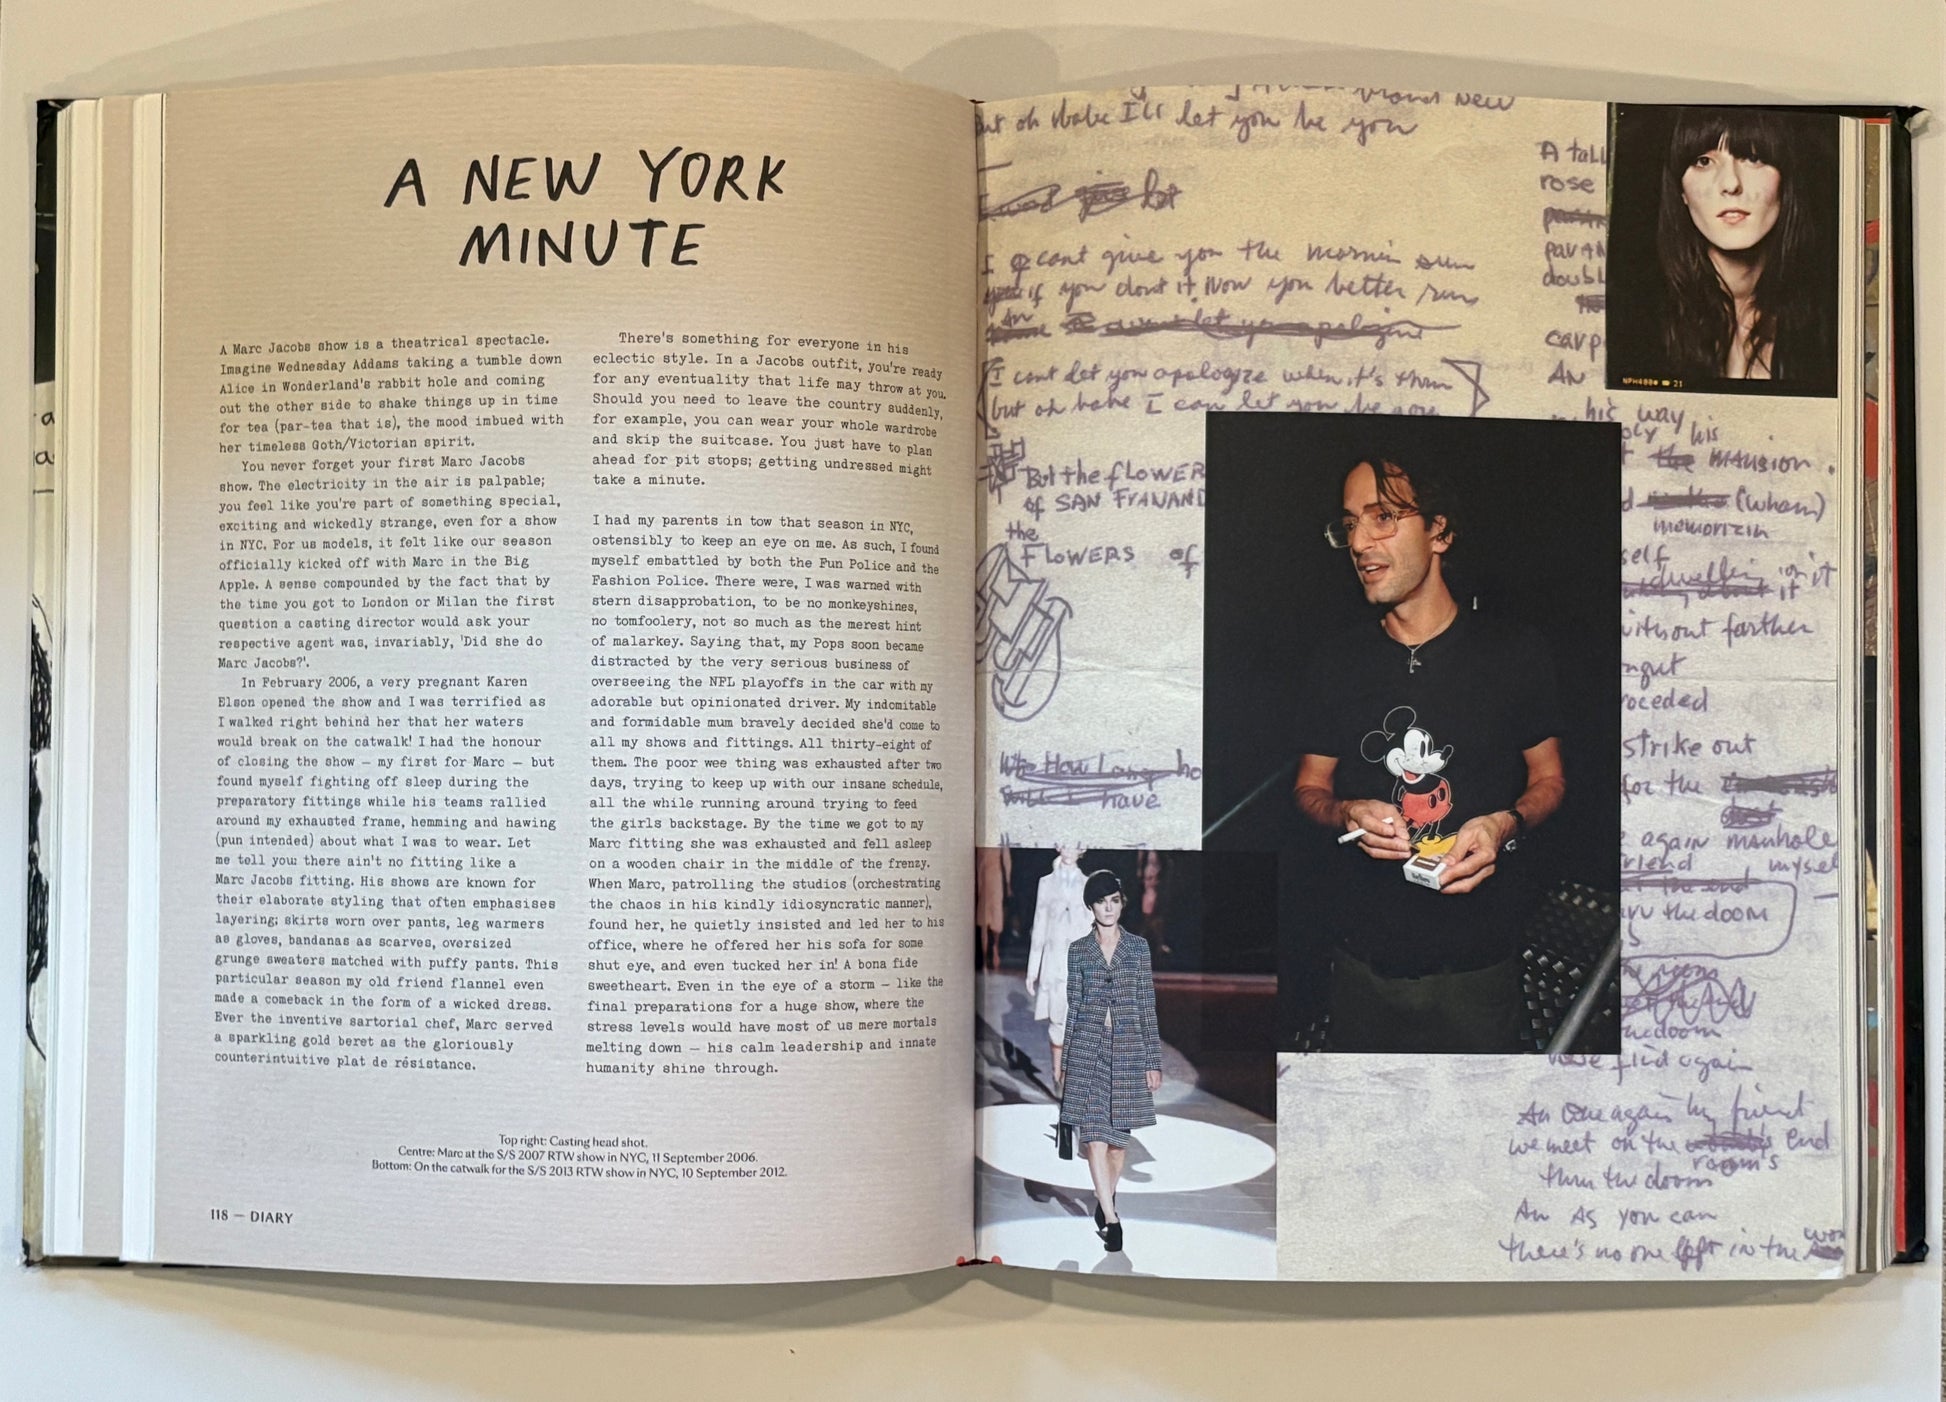 A NEW YORK
MINUTE
A Marc Jacobs show is a theatrical spectacle.
Imagine Wednesday Addams taking a tumble down
Alice in Wonderland's rabbit hole and coming
out the other side to shake things up in time
for tea (par-tea that is), the mood imbued with
her timeless Goth/Victorian spirit.
You never forget your first Marc Jacobs
show. The electricity in the air is palpable;
you feel like you're part of something special,
exciting and wickedly strange, even for a show
in NYC. For us models, it felt like our season
officially kicked off with Marc in the Big
Apple. A sense compounded by the fact that by
the time you got to London or Milan the first
question a casting director would ask your
respective agent was, invariably, 'Did she do
Marc Jacobs?'.
In February 2006, a very pregnant Karen
Elson opened the show and I was terrified as
I walked right behind her that her waters
would break on the catwalk! I had the honour
of closing the show – my first for Marc – but
found myself fighting off sleep during the
preparatory fittings while his teams rallied
around my exhausted frame, hemming and hawing
(pun intended) about what I was to wear. Let
me tell you: there ain't no fitting like a
Marc Jacobs fitting. His shows are known for
their elaborate styling that often emphasises
layering; skirts worn over pants, leg warmers
as gloves, bandanas as scarves, oversized
grunge sweaters matched with puffy pants. This
particular season my old friend flannel even
made a comeback in the form of a wicked dress.
Ever the inventive sartorial chef, Marc served
a sparkling gold beret as the gloriously
counterintuitive plat de résistance.
There's something for everyone in his
eclectic style. In a Jacobs outfit, you're ready
for any eventuality that life may throw at you.
Should you need to leave the country suddenly,
for example, you can wear your whole wardrobe
and skip the suitcase. You just have to plan
ahead for pit stops; getting undressed might
take a minute.
I had my parents in tow that season in NYC,
ostensibly to keep an eye on me. As such, I found
myself embattled by both the Fun Police and the
Fashion Police. There were, I was warned with
stern disapprobation, to be no monkeyshines,
no tomfoolery, not so much as the merest hint
of malarkey. Saying that, my Pops soon became
distracted by the very serious business of
overseeing the NFL playoffs in the car with my
adorable but opinionated driver. My indomitable
and formidable mum bravely decided she'd come to
all my shows and fittings. All thirty-eight of
them. The poor wee thing was exhausted after two
days, trying to keep up with our insane schedule,
all the while running around trying to feed
the girls backstage. By the time we got to my
Marc fitting she was exhausted and fell asleep
on a wooden chair in the middle of the frenzy.
When Marc, patrolling the studios (orchestrating
the chaos in his kindly idiosyncratic manner),
found her, he quietly insisted and led her to his
office, where he offered her his sofa for some
shut eye, and even tucked her in! A bona fide
sweetheart. Even in the eye of a storm – like the
final preparations for a huge show, where the
stress levels would have most of us mere mortals
melting down – his calm leadership and innate
humanity shine through.
Top right: Casting head shot.
Centre: Marc at the S/S 2007 RTW show in NYC, 11 September 2006.
Bottom: On the catwalk for the S/S 2013 RTW show in NYC, 10 September 2012.
118 — DIARY
brand New
But oh babe I'll let you be you
I cant give you the mornin sun
if you dont it. Now you better run
I cant let you apologize when it's
but oh babe I can let you be you
But the FLOWER
of SAN
the
FLOWERS of
How Long
have
A tall
rose
doubl
carp
AN
NPH400 21
his way
his
mansion.
(wham)
memorizin
self
it
without farther
strike out
for the
again manhole
friend mysel
the doom
find again
An One again my friend
we meet on the end
room's
thru the doom
An As you can
there's no one left in the